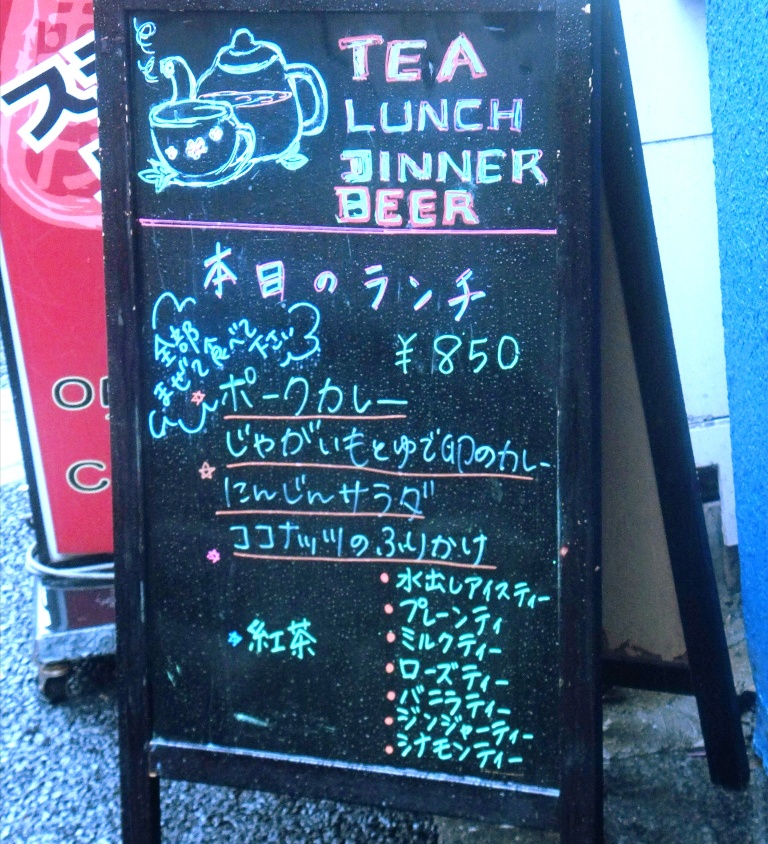 TEA
LUNCH
DINNER
BEER
本日のランチ
全部
まぜて食べて下さい
¥850
ポークカレー
じゃがいもとゆで卵のカレー
にんじんサラダ
ココナッツのふりかけ
紅茶
水出しアイスティー
プレーンティ
ミルクティー
ローズティー
バニラティー
ジンジャーティー
シナモンティー